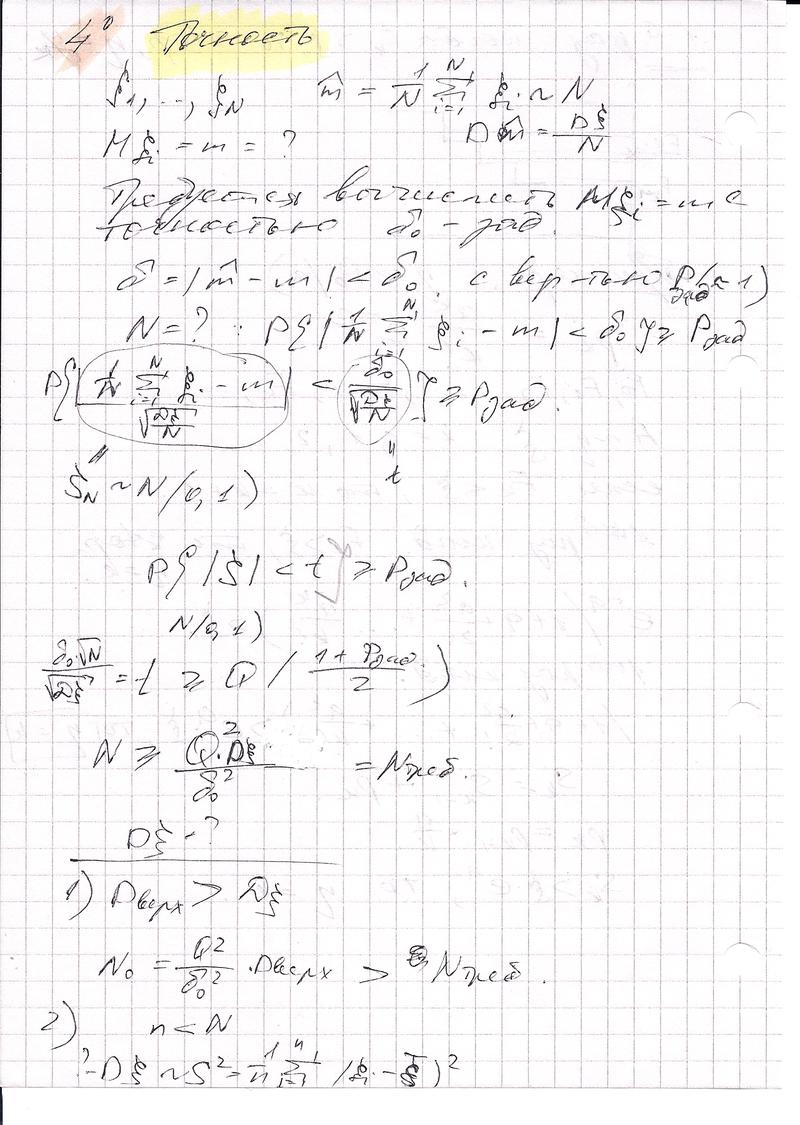 4° Точность
ξ₁, .., ξ_N   m̂ = 1/N ∑_{i=1}^{N} ξᵢ ~ N
Mξᵢ = m = ?   Dm̂ = Dξ/N
Требуется вычислить Mξᵢ = m с
точностью δ₀ - зад.
δ = |m̂ - m| < δ₀ с вер-тью P_зад (≈ 1)
N = ? : P{|1/N ∑_{i=1}^{N} ξᵢ - m| < δ₀} ≥ P_зад
P{|(1/N ∑_{i=1}^{N} ξᵢ - m)/√(Dξ/N)| < δ₀/√(Dξ/N)} ≥ P_зад.
" "
ξ_N ~ N(0,1)   t
P{|ξ| < t} ≥ P_зад.
N(0,1)
δ₀√N/√Dξ = t ≥ Q((1 + P_зад.)/2)
N ≥ Q²·Dξ/δ₀² = N_треб.
Dξ - ?
1) D_верх > Dξ
N₀ = Q²/δ₀² · D_верх > N_треб.
2) n < N
? - Dξ ~ S² = 1/n ∑_{i=1}^{n} (ξᵢ - ξ̄)²